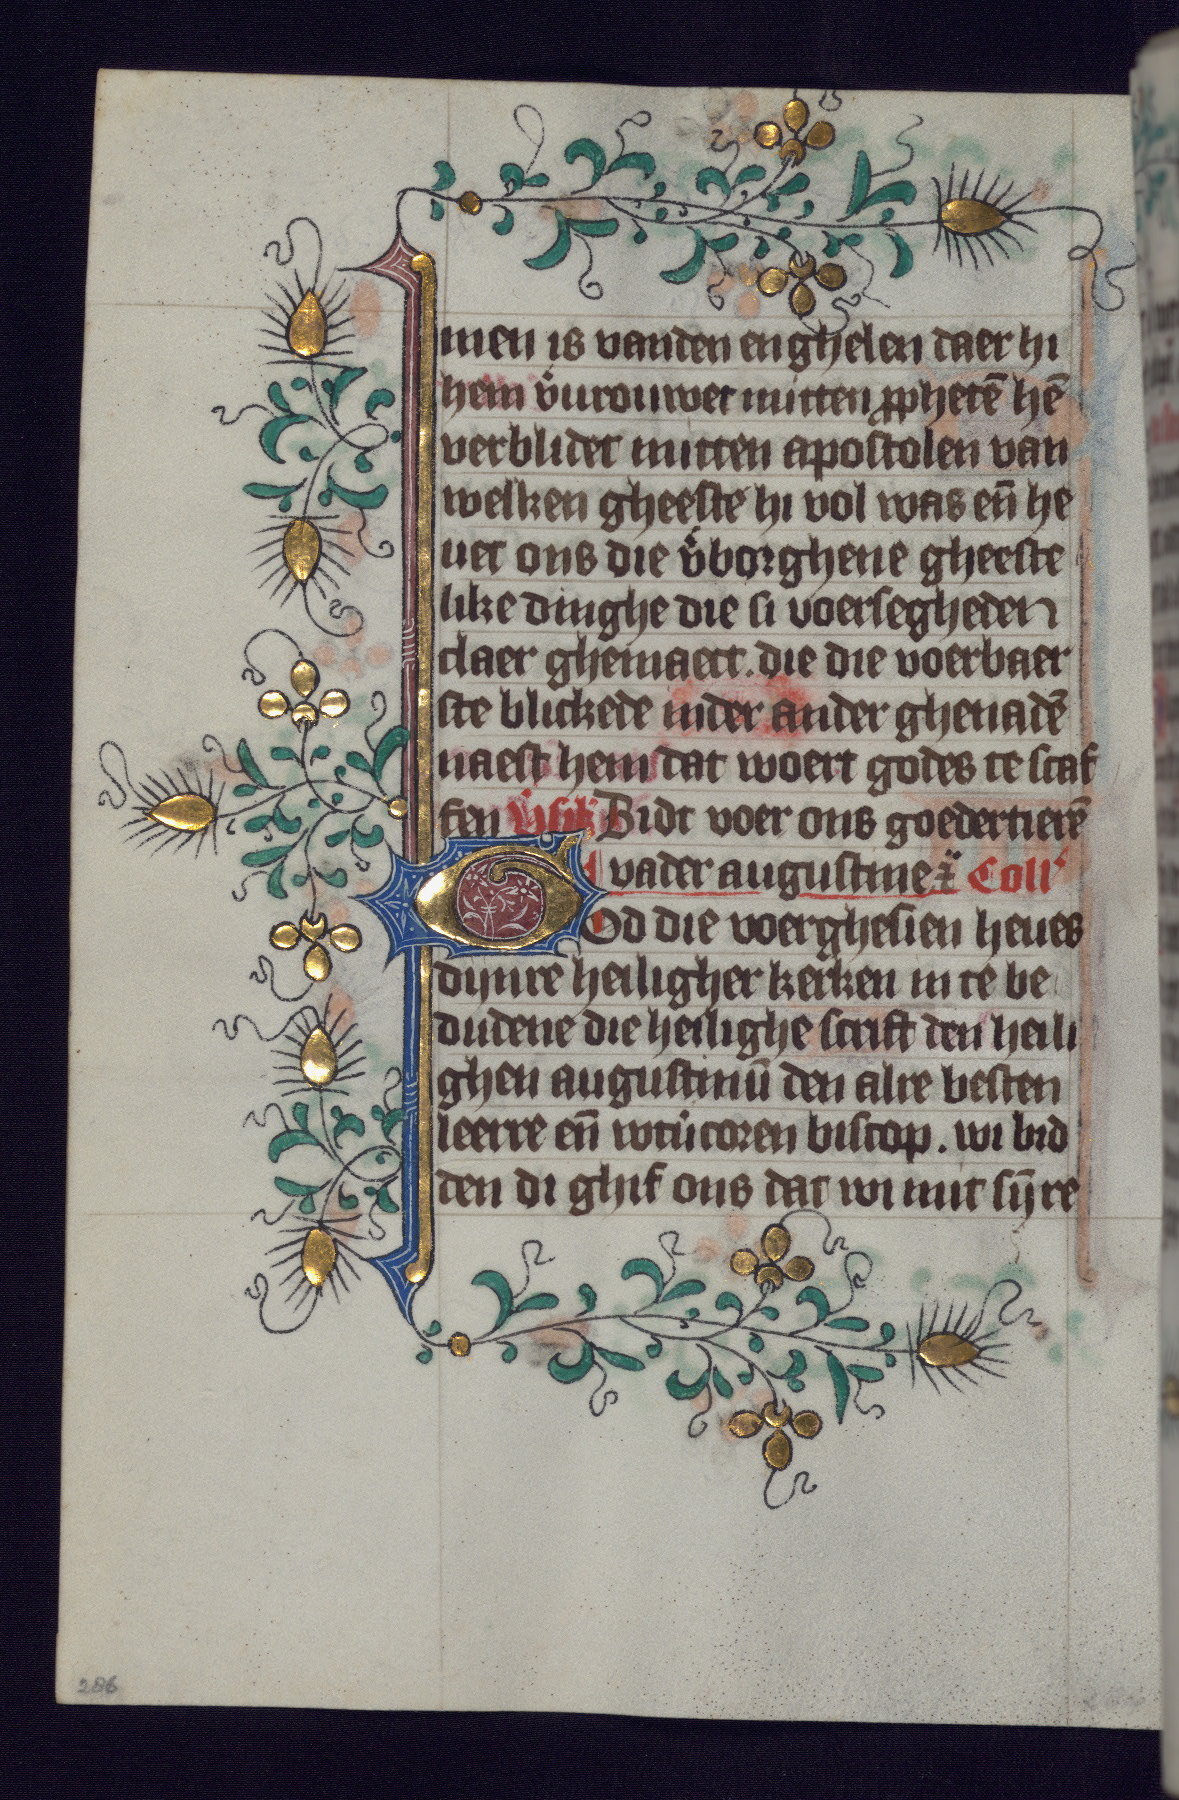 men is vanden enghelen daer hi
hem v͛urouwet mitten ꝓphetē hē
verblidet mitten apostolen van
welken gheeste hi vol was eñ he
uet ons die v͛borghene gheeste
like dinghe die si voersegheden
claer ghemaect. die die voerbaer
ste blickede inder ander ghenadē
naest hem dat woert godes te scaf
fen Bidt voer ons goedertierē
vader augustine Coll'
God die voerghesien heues
dijnre heiligher kerken in te be
dudene die heilighe scrift den heili
ghen augustinū den alre besten
leerre eñ wtůcoren biscop. wi bid
den di ghif ons dat wi mit sijre
286